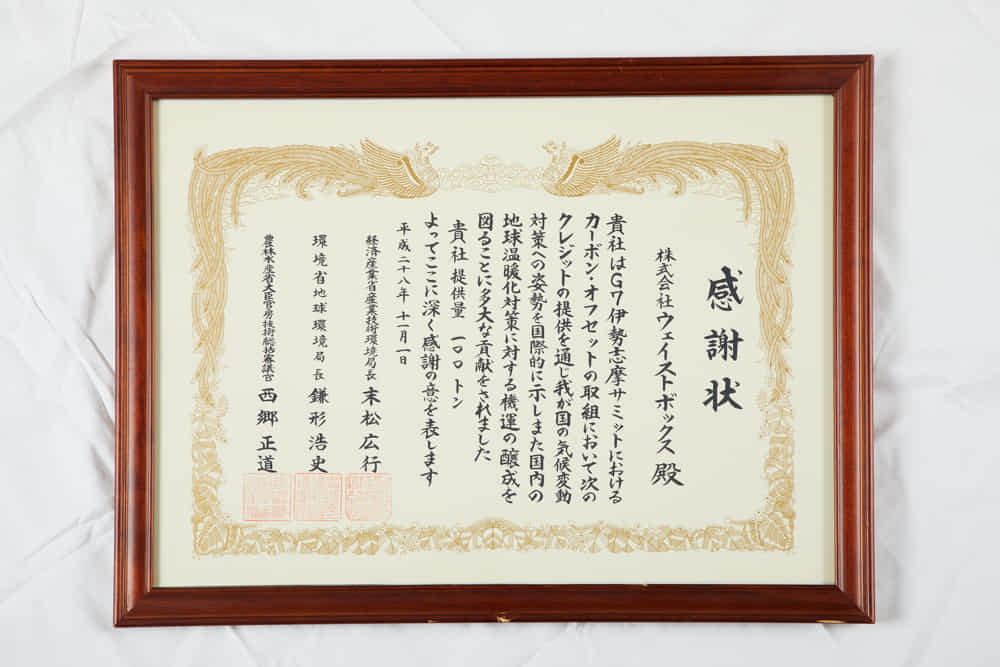 感謝状
株式会社ウェイストボックス 殿
貴社はG7伊勢志摩サミットにおける
カーボン・オフセットの取組において次の
クレジットの提供を通じ我が国の気候変動
対策への姿勢を国際的に示しまた国内の
地球温暖化対策に対する機運の醸成を
図ることに多大な貢献をされました
貴社提供量 一〇〇トン
よってここに深く感謝の意を表します
平成二十八年 十一月一日
経済産業省産業技術環境局長 末松広行
環境省地球環境局長 鎌形浩史
農林水産省大臣官房技術総括審議官 西郷正道